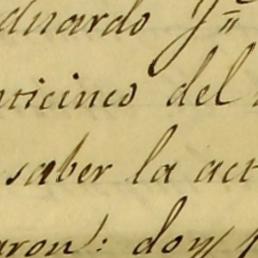 duardo
nticinco del
saber la act
aron: doy